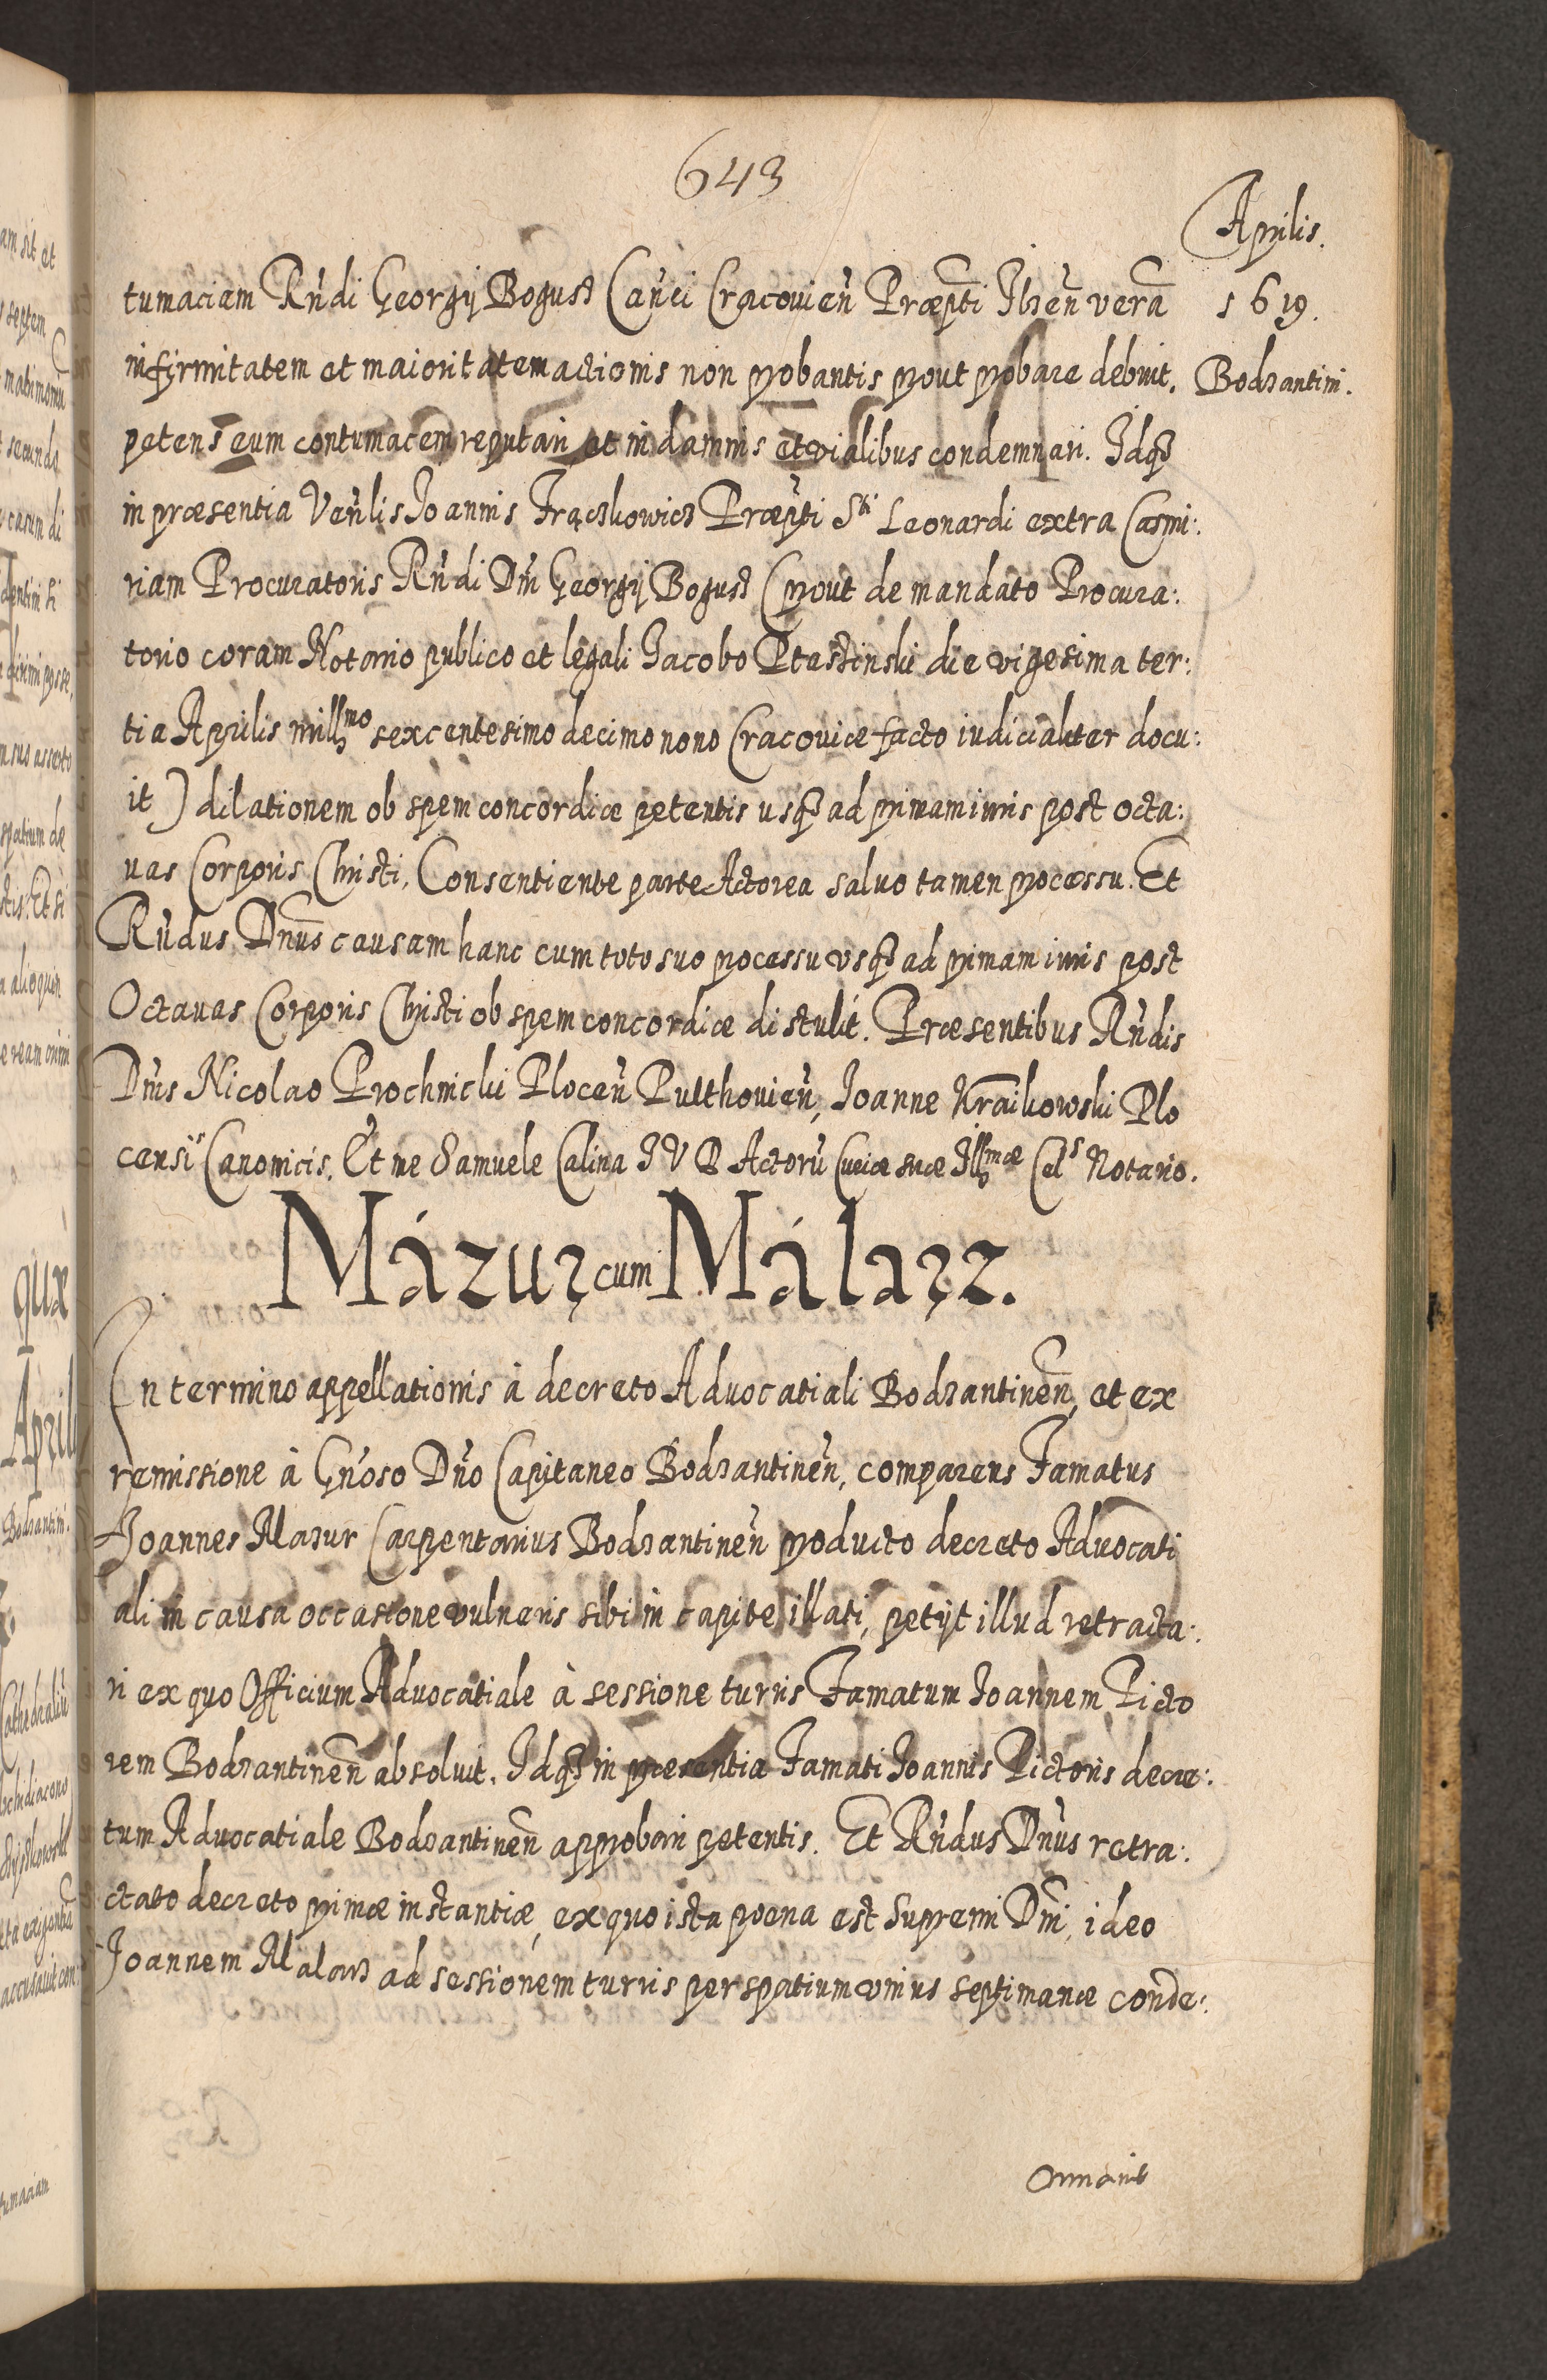 643
Aprilis.
1619.
Bodzantini.
tumaciam Rńdi Georgij Bogusz Cańci Cracovień Præpti Ilzeń verã
infirmitatem et maioritatem actionis non probantis prout probare debuit,
petens eum contumacem reputari et in damnis et vialibus condemnari. Idqz
in præsentia Veńlis Joannis Frączkowicz Præpti Sti Leonardi extra Casmi:
riam Procuratoris Rńdi Dńi Georgij Bogusz (prout de mandato Procura:
torio coram Notario publico et legali Jacobo Ptaszinski die vigesima ter:
tia Aprilis millmo sexcentesimo decimo nono Cracoviæ facto iudicialiter docu:
it) dilationem ob spem concordiæ petentis usqz ad primam iuris post octa:
uas Corporis Christi, Consentiente parte Actorea salvo tamen processu. Et
Rńdus Dńus causam hanc cum toto suo processu vsqz ad primam iuris post
Octavas Corporis Christi ob spem concordiæ distulit. Præsentibus Rńdis
Dńis Nicolao Prochnicki Ploceń Pulthovień, Joanne Kraikowski Plo
censi Canonicis. Et me Samuele Calina I V D Actorũ Curiæ suæ Illmæ Cels Notario.
Mázur cum Málarz.
In termino appellationis à decreto Advocatiali Bodzantineń, et ex
remissione à Gńoso Dńo Capitaneo Bodzantineń, comparens Famatus
Joannes Mazur Carpentarius Bodzantineń producto decreto Advocati
ali in causa occasione vulneris sibi in capite illati, petijt illud retracta:
ri ex quo Officium Advocatiale à sessione turris Famatum Joannem Picto
rem Bodzantineń absoluit. Idqz in præsentia Famati Joannis Pictoris decre:
tum Advocatiale Bodzantineń approbari petentis. Et Rńdus Dńus retra:
ctato decreto primæ instantiæ, ex quo ista poena est Supremi Dńi, ideo
Joannem Malarz ad sessionem turris per spatium vnius septimanæ conde: